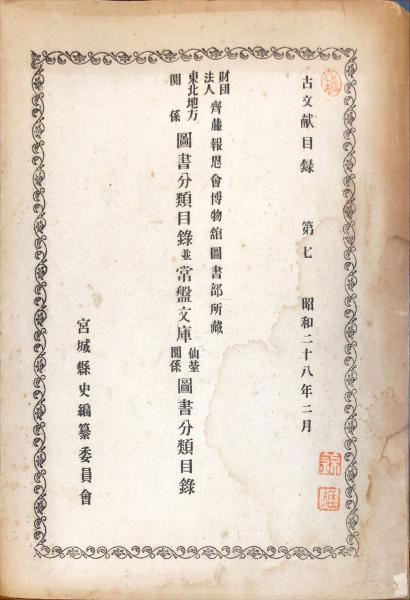 古文献目録 第七 昭和二十八年二月
財団法人 齊藤報恩會博物館圖書部所藏
東北地方関係 圖書分類目錄並常盤文庫仙薹関係圖書分類目錄
宮城縣史編纂委員會